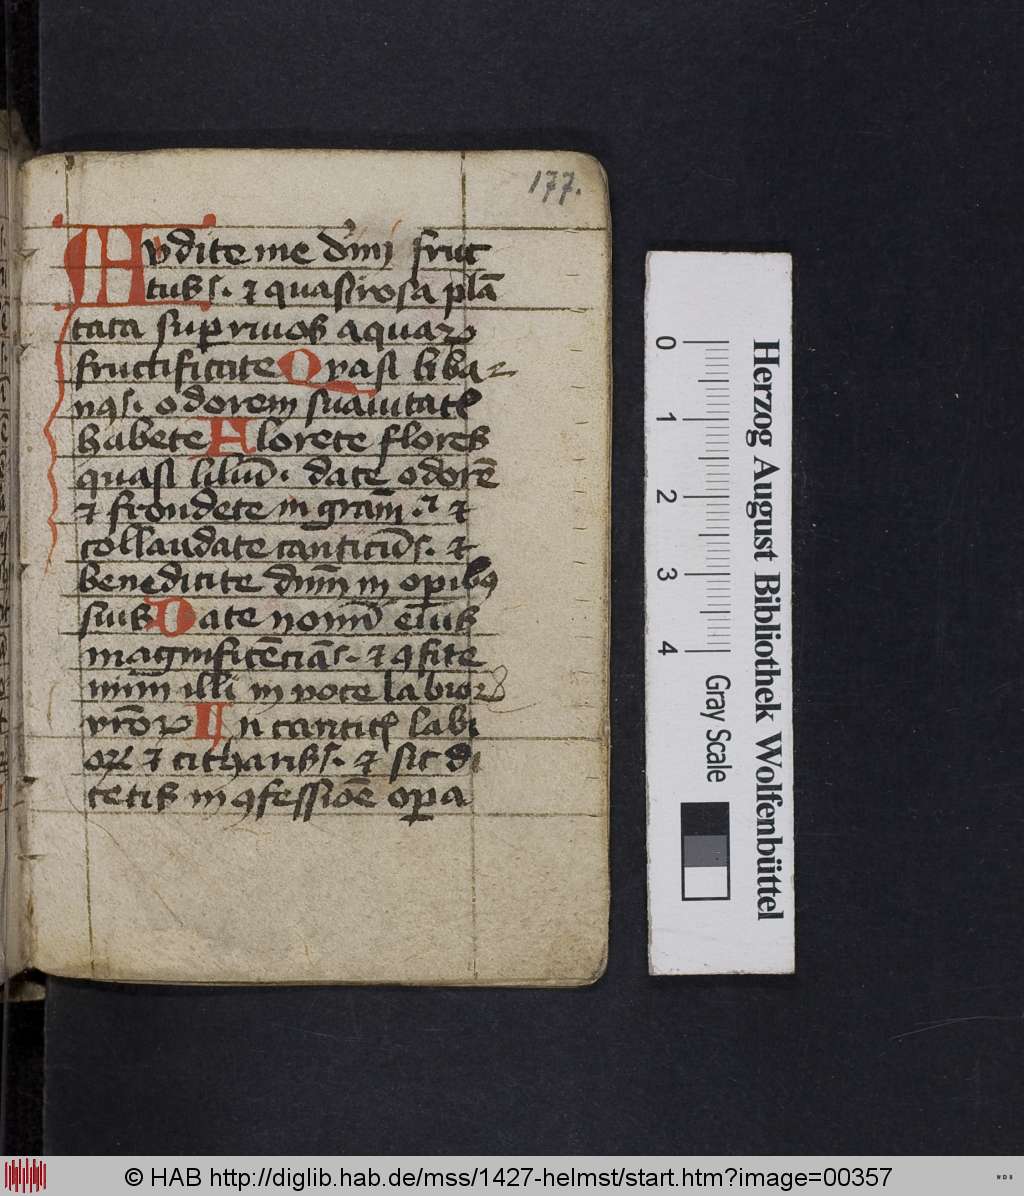 177.
Avdite me dīuī fruc
tus ꝭ. ⁊ quasi rosa plā
tata suꝑ riuos aquaꝝ
fructificate Qvasi liba
nꝯ ꝭ. odorem suauitatꝭ
habete Florete flores
quasi liliū. date odorē
⁊ frondete in grām. ⁊
collaudate canticū ꝭ. ⁊
benedicite dnm̄ in opibꝯ
suis Date nomī eius
magnificēciā ꝭ. ⁊ ꝯfite
mīm illi in voce labioꝝ
vr̄oꝝ In canticꝭ labi
oꝝ ⁊ citharis ꝭ. ⁊ sic di
cetis in ꝯfessiōe oꝑa
0 1 2 3 4
Gray Scale
Herzog August Bibliothek Wolfenbüttel
© HAB http://diglib.hab.de/mss/1427-helmst/start.htm?image=00357